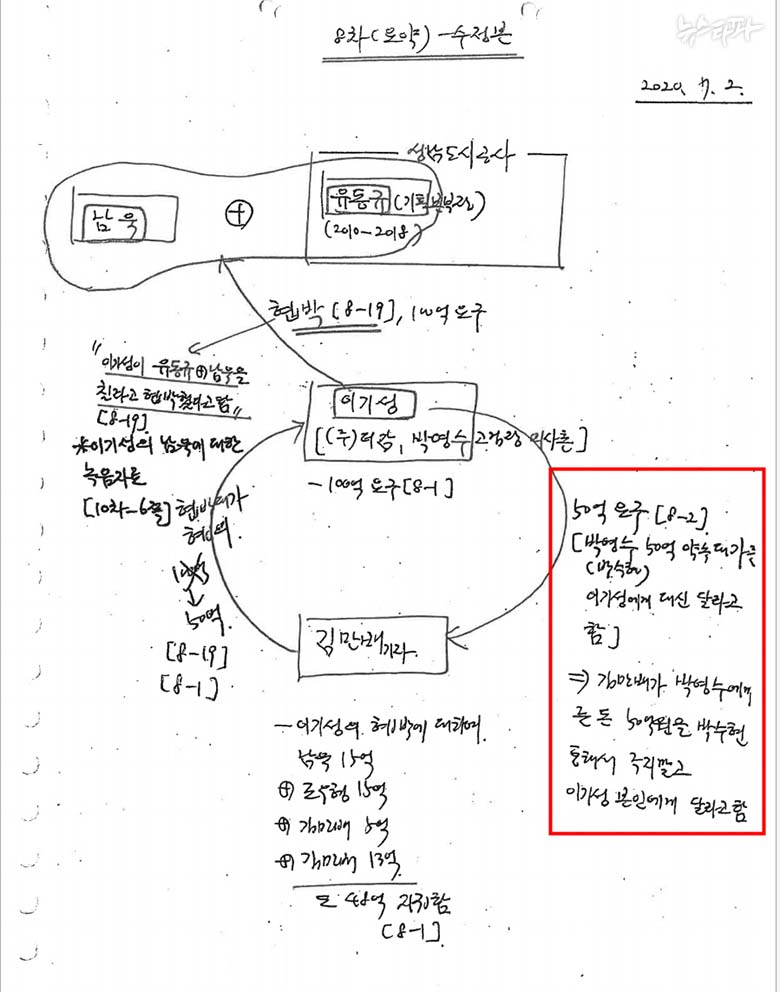 뉴스타파
8차(요약) - 수정본
2020. 7. 2.
성남도시공사
남욱
⊕
유동규 (기획본부장)
(2010-2018)
협박 [8-19], 100억 요구
"이기성이 유동규⊕남욱을
친다고 협박했다고 함"
[8-19]
*이기성의 남욱에 대한
녹음자료
[10차-6쪽]
이기성
[(주)더감, 박영수 고검장 인사촌]
- 100억 요구 [8-1]
협박대가
협의
100억
↓
50억
[8-19]
[8-1]
김만배 기자
50억 요구 [8-2]
[박영수 50억 약속대가를
(박수현)
이기성에게 대신 달라고
함]
⇒ 김만배가 박영수에게
준 돈 50억원을 박수현
통해서 주지말고
이기성 본인에게 달라고 함
- 이기성의 협박에 대하여
남욱 15억
⊕ 15억
⊕ 김만배 5억
⊕ 김만배 13억
도 48억
[8-1]